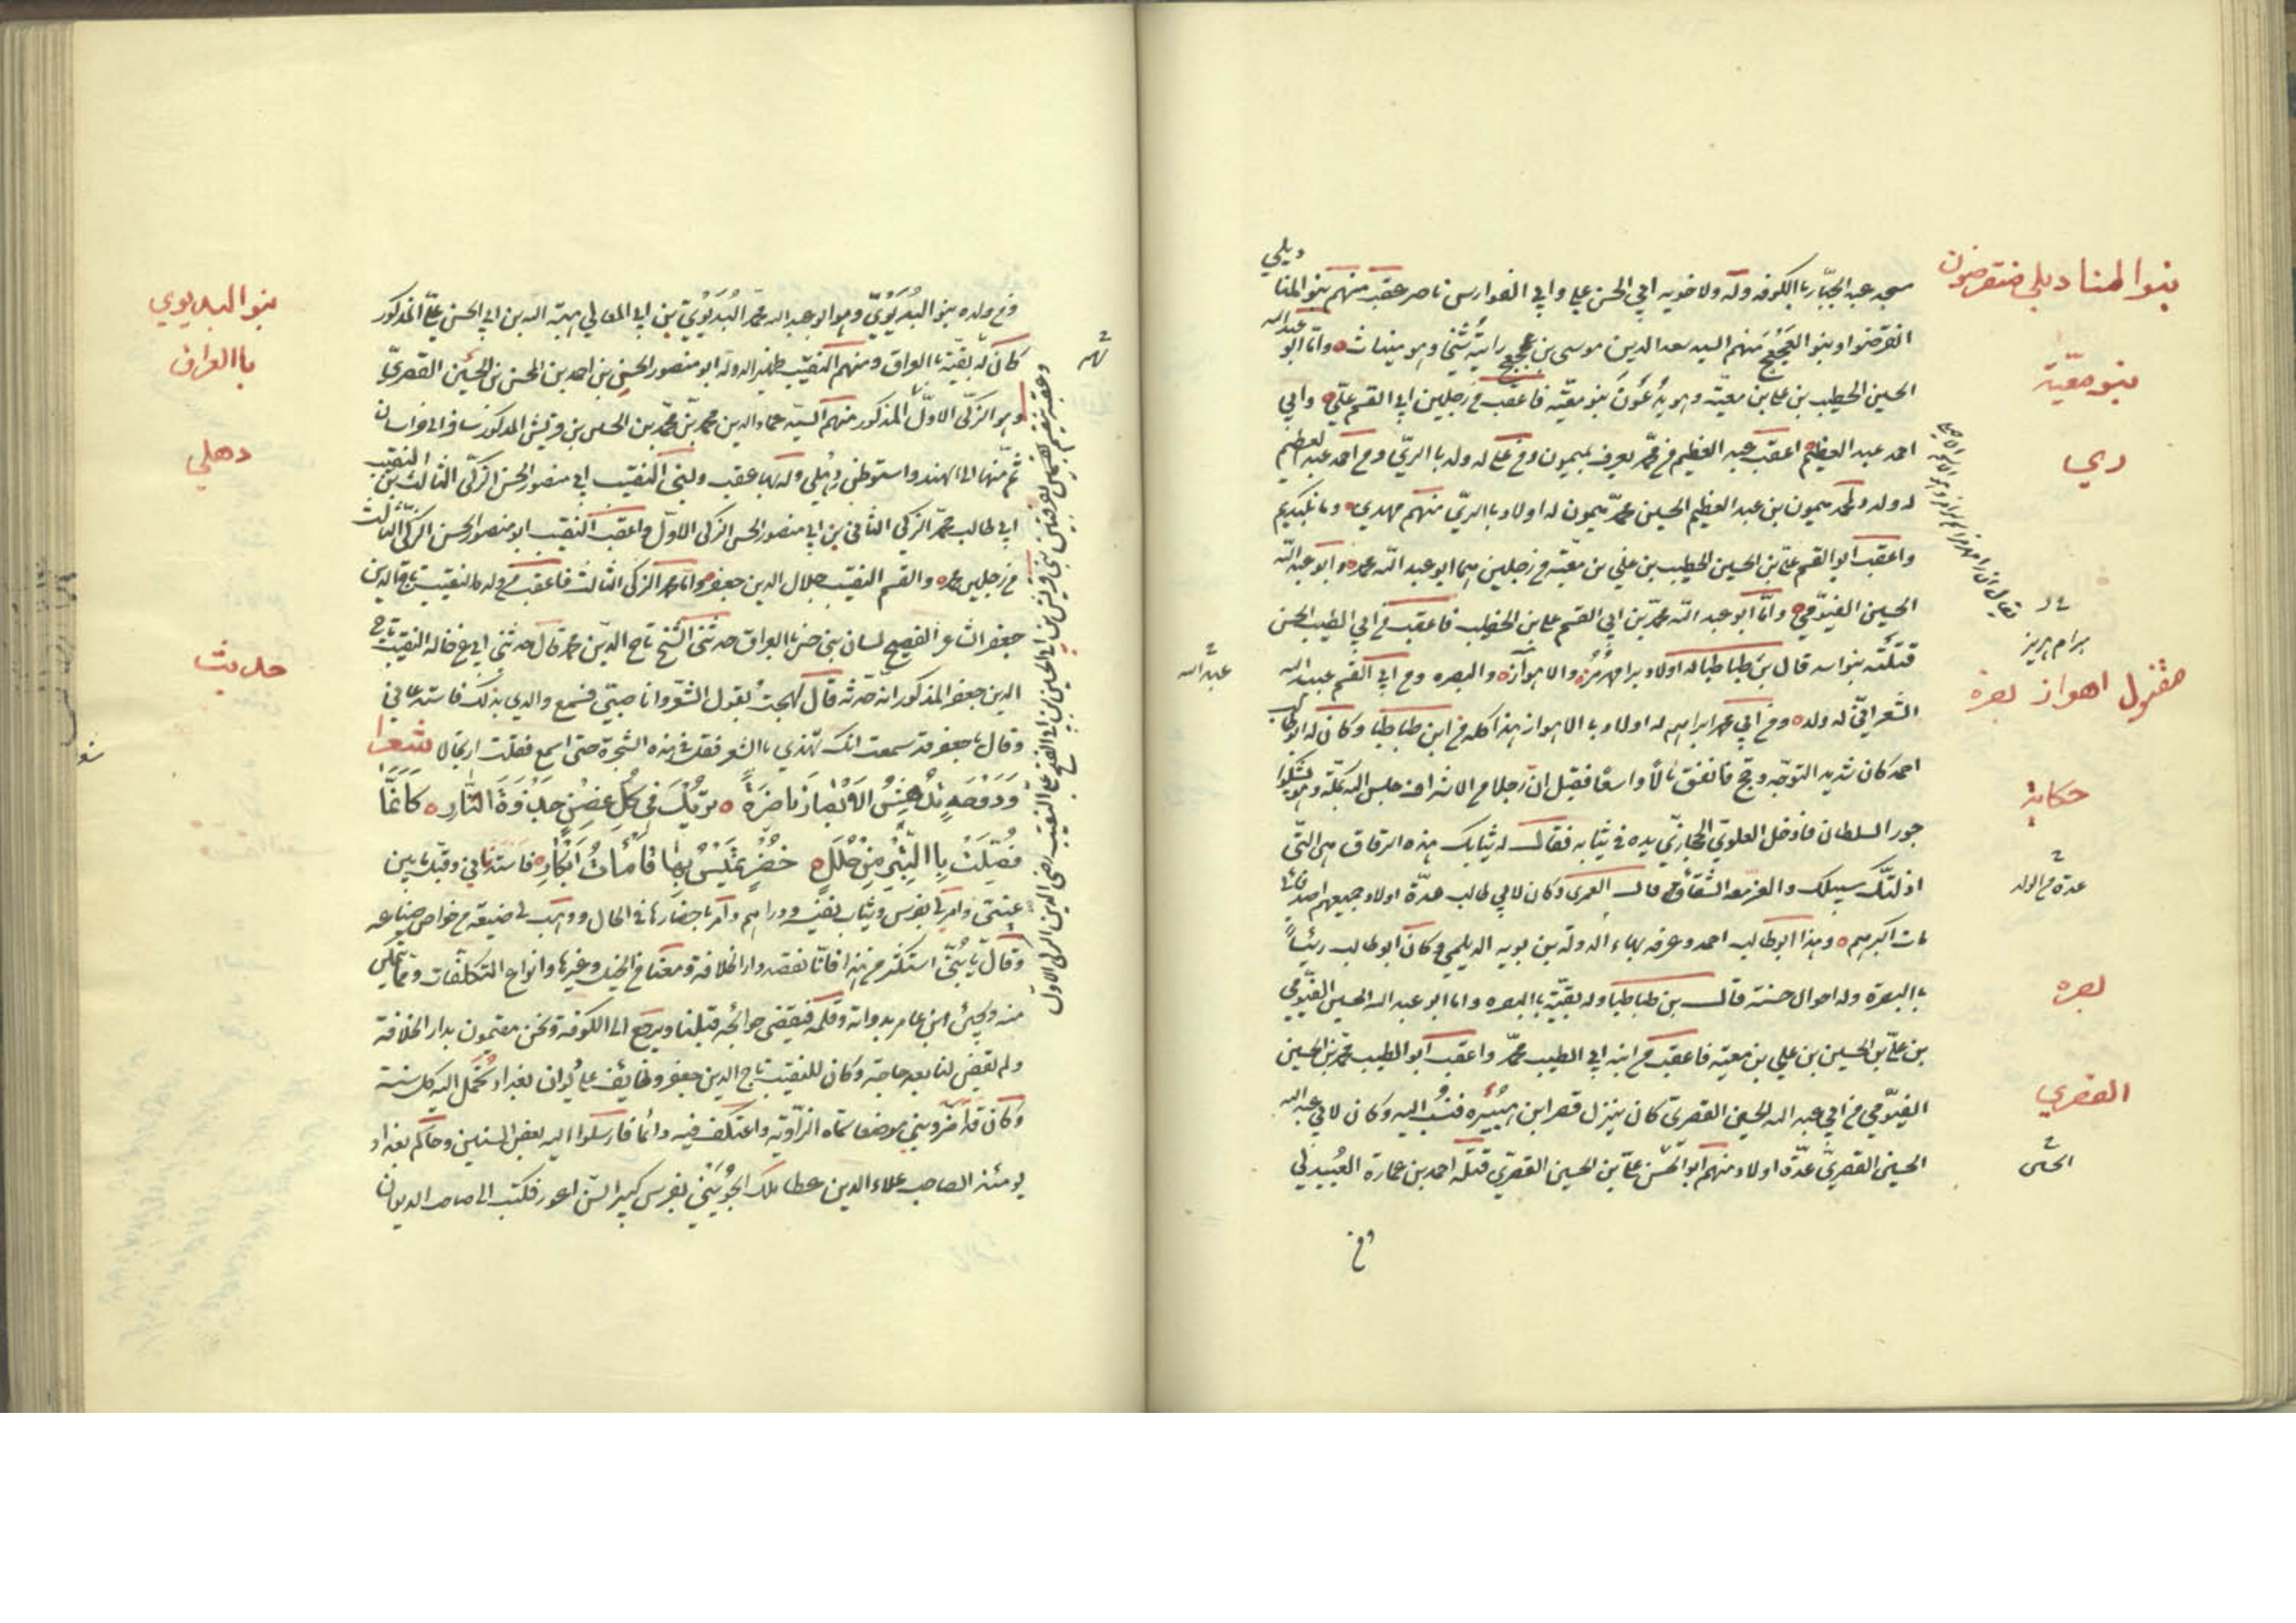 بنوا المنا ديلي منقرضون
ديلي
مسجد عبد الجبّار بالكوفه وله ولاخويه ابي الحسن علي وابي الفوارس ناصر عقب منهم بنو المنا
انقرضوا وبنو العجعج منهم السيد سعد الدين موسى بن عجعج رأيته شيخا وهو ميناث وامّا ابو عبد الله
بنو معيّة
الحسين الخطيب بن علي بن معيّة وهو يدعون بنو معيّه فاعقب من رجلين ابي القسم علي وابي
ري
احمد عبد العظيم اعقب عبد العظيم من محمّد يعرف بميمون ومن علي له ولد بالريّ ومن احمد عبد العظيم
له ولد ومحمد ميمون بن عبد العظيم الحسين محمد ميمون له اولاد بالريّ منهم مهدي ومانكديم
واعقب ابو القسم علي بن الحسين الخطيب بن علي بن معيّة من رجلين هما ابو عبد الله محمد وابو عبد الله
الحسين الفيّومي وامّا ابو عبد الله محمد بن ابي القسم علي بن الخطيب فاعقب من ابي الطيب الحسن
مقتول اهواز بصرة
قتلته بنو اسد قال بن طباطبا له اولاد برامهرمز والاهواز والبصره ومن ابي القسم عبيد الله
عبد الله
الشعراني له ولد ومن ابي محمد ابراهيم له اولاد بالاهواز هذا كله من ابن طباطبا وكان له ابو طالب
حكاية
احمد كان شديد التوجّه وحج فانفق مالاً واسعا فقيل ان رجلا من الاشراف جلس اليه بمكّة وهو يشكوا
جور السلطان فادخل العلوي الحجازي يده في ثيابه فقال له ثيابك هذه الرقاق هي التي
عدة من الولد
اذلتك سبيلك والعزّ معه الشقاء قال العمري وكان لابي طالب عدّة اولاد جميعهم اصدقائي
مات اكبرهم وهذا ابو طالب احمد وعرفه بهاء الدولة بن بويه الديلمي وكان ابو طالب رئيساً
بصره
بالبصرة وله احوال حسنة قال بن طباطبا وله بقيّة بالبصره واما ابو عبد الله الحسين الفيّومي
بن علي بن الحسين بن علي بن معيّة فاعقب من ابنه ابي الطيب محمّد واعقب ابو الطيب محمد بن الحسين
القصري
الفيّومي من ابي عبد الله الحسين القصريّ كان ينزل قصر ابن هبيره فنسب اليه وكان لابي عبد الله
الحسن
الحسين القصريّ عدّة اولاد منهم ابو الحسن علي بن الحسين القصريّ قتله احمد بن عمارة العبيدلي
ومن
بنو البديوي
ومن ولده بنو البديويّ وهو ابو عبد الله محمد البديويّ بن ابي المعالي هبة الله بن ابي الحسن عليّ المذكور
باالعراق
كان له بقيّة بالعراق ومنهم النقيب ظهير الدولة ابو منصور الحسن بن احمد بن الحسن بن الحسين القصريّ
وهو الزكي الاوّل المذكور منهم السيّد عماد الدين محمد بن محمّد بن الحسن بن قريش المذكور سافر الى خراسان
دهلي
ثم منها الى الهند واستوطن دهلي وله بها عقب ولبني النقيب ابي منصور الحسن الزكيّ الثالث بن النقيب
ابي طالب محمّد الزكي الثاني بن ابي منصور الحسن الزكي الاوّل واعقب النقيب ابو منصور الحسن الزكيّ الثالث
من رجلين محمد والقسم النقيب جلال الدين جعفر وامّا محمد الزكي الثالث فاعقب من ولده النقيب تاج الدين
جعفر الشاعر الفصيح لسان بني حسن بالعراق حدثني الشيخ تاج الدين محمد قال حدثني ابي عن خاله النقيب تاج
حديث
الدين جعفر المذكور انه حدّثه قال لهجت بقول الشعر وانا صبيّ فسمع والدي بذلك فاستدعاني
وقال يا جعفر قد سمعت انك تهذي بالشعر فقل في هذه الشجرة حتى اسمع فقلت ارتجالا شعرا
ودوحة تدهش الابصار ناضرة تريك في كل غصن جذوة النار كانّما
فصّلت باالتبر من حلل خضر تميس بها قامات ابكار فاستدناني وقبّل ما بين
عينيّ وامر لي بفرس وثياب نفيسة ودراهم وامر باحضارها في الحال ووهب لي ضيعة من خواص ضياعه
وقال يا بنيّ استكثر من هذا فانّا نقصد دار الخلافة ومعنا من الخيل وغيرها وانواع التكلّفات وما نمكن
منه ويجيئ ابن عامر بدواته وقلمه فيقضي حوائجه قبلنا ويرجع الى الكوفة ونحن مقيمون بدار الخلافة
ولم يقض لنا بعد حاجة وكان للنقيب تاج الدين جعفر وظايف على ديوان بغداد تحمل اليه كل سنة
وكان قد اضرّ وبني موضعا سماه الزاوية واعتكف فيه دائما فارسلوا اليه بعض السنين وحاكم بغداد
يومئذ الصاحب علاء الدين عطا ملك الجويني بفرس كبير السن اعور فكتب الى صاحب الديوان